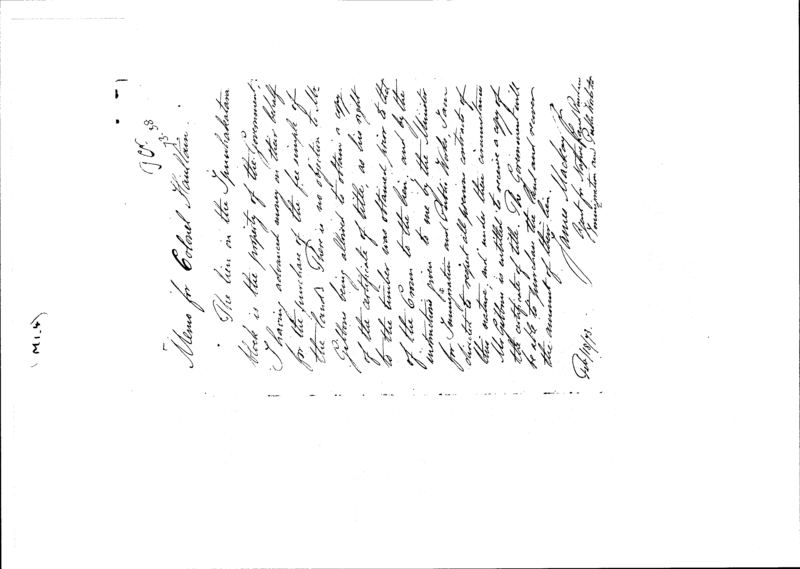 Memo for Colonel Haultain.
The lien on the
block is the property of the Government:
I having advanced money on their behalf
for the purchase of the fee simple of
the land. There is no objection to Mr
Gibbons being allowed to obtain a copy
of the certificate of title, as his right
to the timber was obtained prior to that
of the Crown to the lien, and by the
instructions given to me by the Minister
for Immigration and Public Works, I am
directed to respect all previous contracts of
this nature, and under these circumstances
Mr Gibbons is entitled to receive a copy of
the certificate of title. The Government will
be able to purchase the land and recover
the amount of their lien.
James Mackay Jr
Agent for
Immigration and Public Works
Feb /73.
(M1.4)